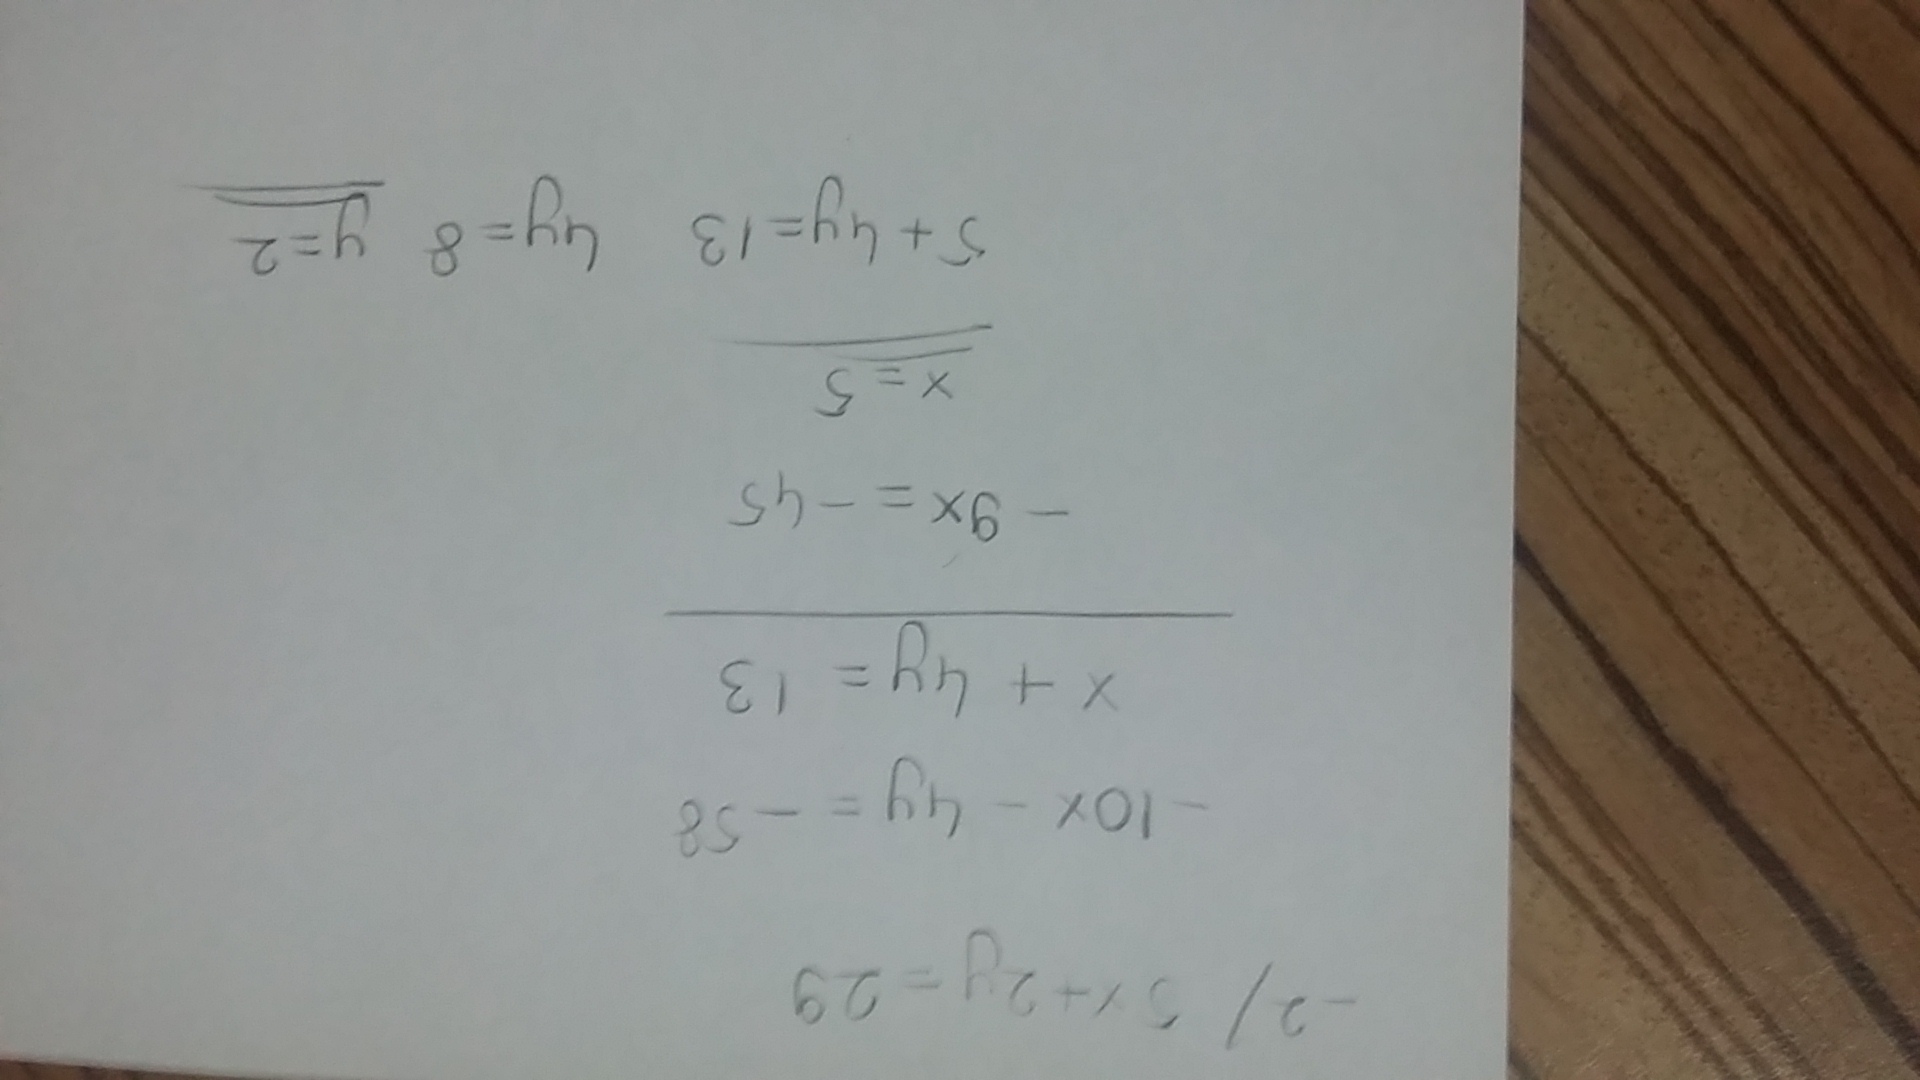 -2/ 5x+2y=29
-10x - 4y = -58
x + 4y = 13
- 9x = -45
x = 5
5+4y=13 4y=8 y=2